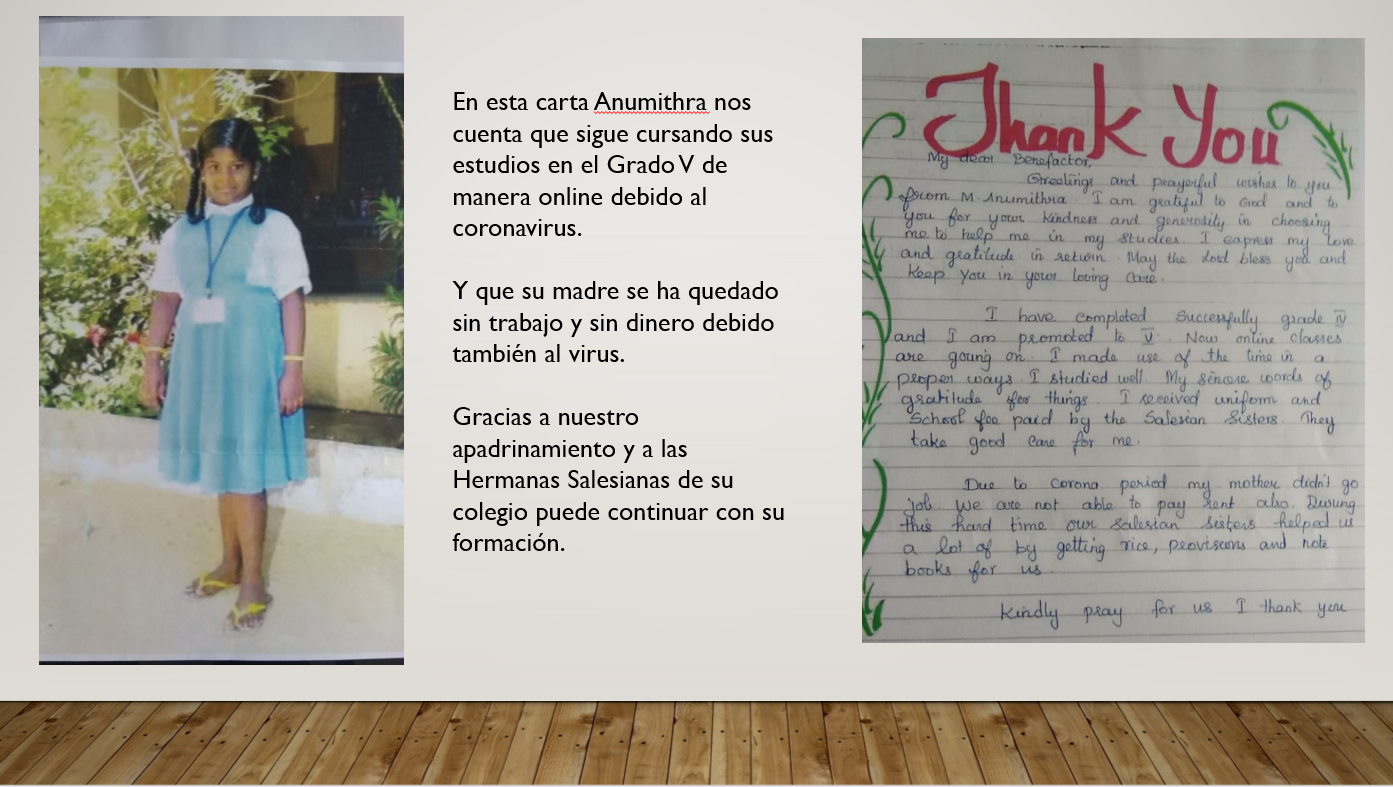 En esta carta Anumithra nos
cuenta que sigue cursando sus
estudios en el Grado V de
manera online debido al
coronavirus.
Y que su madre se ha quedado
sin trabajo y sin dinero debido
también al virus.
Gracias a nuestro
apadrinamiento y a las
Hermanas Salesianas de su
colegio puede continuar con su
formación.
Thank You
My dear Benefactor,
Greetings and prayerful wishes to you
from M Anumithra I am gratiful to God and to
you for your kindness and generosity in choosing
me to help me in my studies. I express my love
and gratitude in return. May the Lord bless you and
keep you in your loving care.
I have completed Successfully grade IV
and I am promoted to V. Now online classes
are going on. I made use of the time in a
proper ways. I studied well. My sincere words of
gratitude for things. I received uniform and
School fee paid by the Salesian Sisters. They
take good care for me.
Due to corona period my mother didn't go
job. We are not able to pay rent also. During
this hard time our salesian sisters helped us
a lot of by getting rice, provisions and note
books for us.
Kindly pray for us I thank you